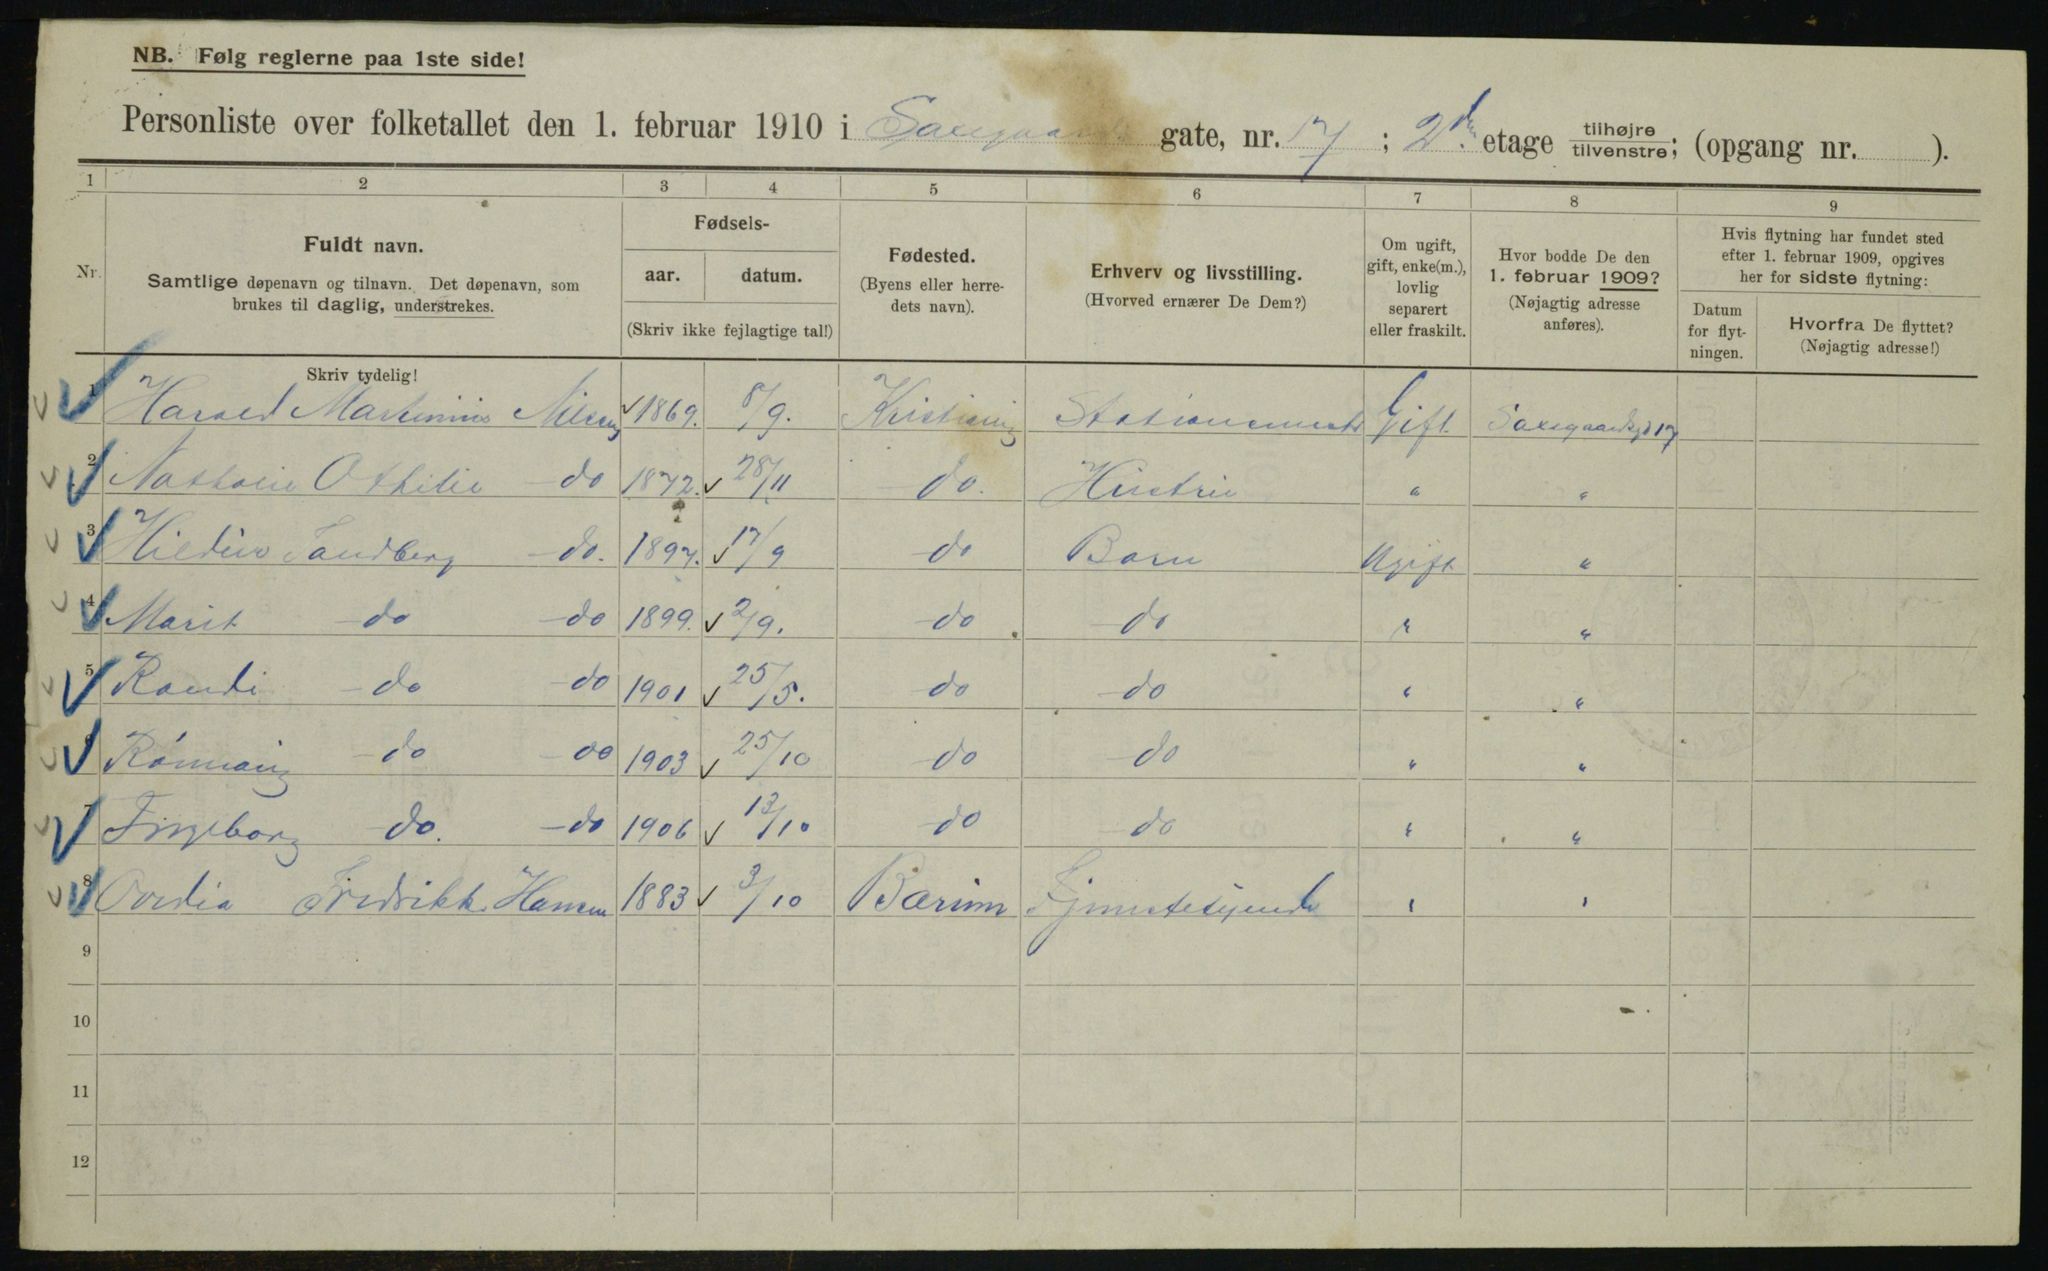 NB. Følg reglerne paa 1ste side!
Personliste over folketallet den 1. februar 1910 i Saxegaards gate, nr. 17 ; 2den etage tilhøjre tilvenstre; (opgang nr. ).
1 2 3 4 5 6 7 8 9
Nr.
Fuldt navn.
Samtlige døpenavn og tilnavn. Det døpenavn, som
brukes til daglig, understrekes.
Skriv tydelig!
Fødsels-
aar. datum.
(Skriv ikke fejlagtige tal!)
Fødested.
(Byens eller herre-
dets navn).
Erhverv og livsstilling.
(Hvorved ernærer De Dem?)
Om ugift,
gift, enke(m.),
lovlig
separert
eller fraskilt.
Hvor bodde De den
1. februar 1909?
(Nøjagtig adresse
anføres).
Hvis flytning har fundet sted
efter 1. februar 1909, opgives
her for sidste flytning:
Datum
for flyt-
ningen.
Hvorfra De flyttet?
(Nøjagtig adresse!)
1 Harald Martinius Nilsen 1869. 8/9. Kristiania Stationsmester Gift Saxegaardsgt 17
2 Nathalie Othilie do 1872. 28/11 do. Hustru " "
3 Sandberg do. 1897. 17/9 do Barn Ugift "
4 Marit do do 1899. 2/9. do do " "
5 Randi do do 1901 25/5. do do " "
6 do do 1903 25/10 do do " "
7 Ingeborg do. do 1906 13/10 do do " "
8 Ovidia Fredrikke Hansen 1883 3/10 Bærum Tjenestepige " "
9
10
11
12